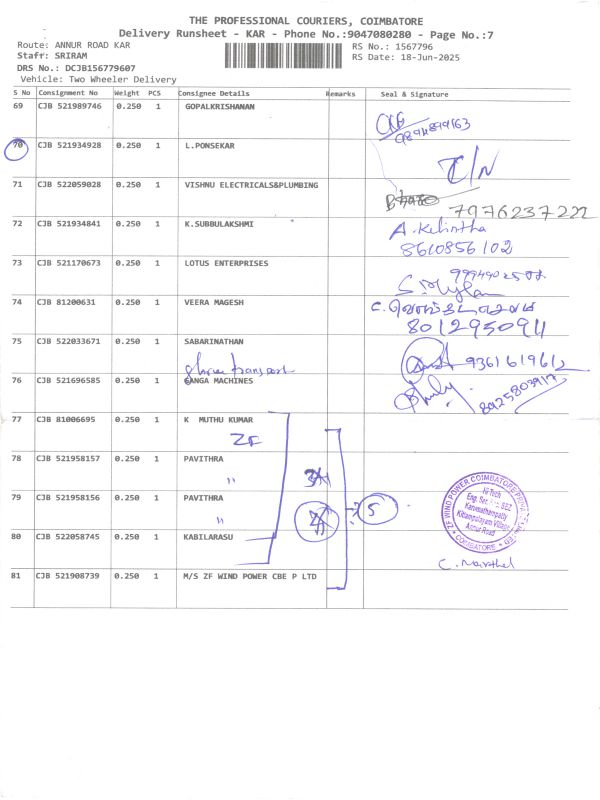 THE PROFESSIONAL COURIERS, COIMBATORE
Delivery Runsheet - KAR - Phone No.:9047080280 - Page No.:7
Route: ANNUR ROAD KAR
RS No.: 1567796
Staff: SRIRAM
RS Date: 18-Jun-2025
DRS No.: DCJB156779607
Vehicle: Two Wheeler Delivery
S No Consignment No Weight PCS Consignee Details Remarks Seal & Signature
69 CJB 521989746 0.250 1 GOPALKRISHANAN
9894899163
70 CJB 521934928 0.250 1 L.PONSEKAR
C/N
71 CJB 522059028 0.250 1 VISHNU ELECTRICALS&PLUMBING
7976237222
72 CJB 521934841 0.250 1 K.SUBBULAKSHMI
8610856102
73 CJB 521170673 0.250 1 LOTUS ENTERPRISES
74 CJB 81200631 0.250 1 VEERA MAGESH
8012950911
75 CJB 522033671 0.250 1 SABARINATHAN
9361619612
76 CJB 521696585 0.250 1 GANGA MACHINES
8925803917
77 CJB 81006695 0.250 1 K MUTHU KUMAR
ZF
78 CJB 521958157 0.250 1 PAVITHRA
"
79 CJB 521958156 0.250 1 PAVITHRA
"
5
80 CJB 522058745 0.250 1 KABILARASU
81 CJB 521908739 0.250 1 M/S ZF WIND POWER CBE P LTD
ZF WIND POWER COIMBATORE
Hi Tech
SEZ
Karumathampatty
Kittampalayam Village
Annur Road
COIMBATORE